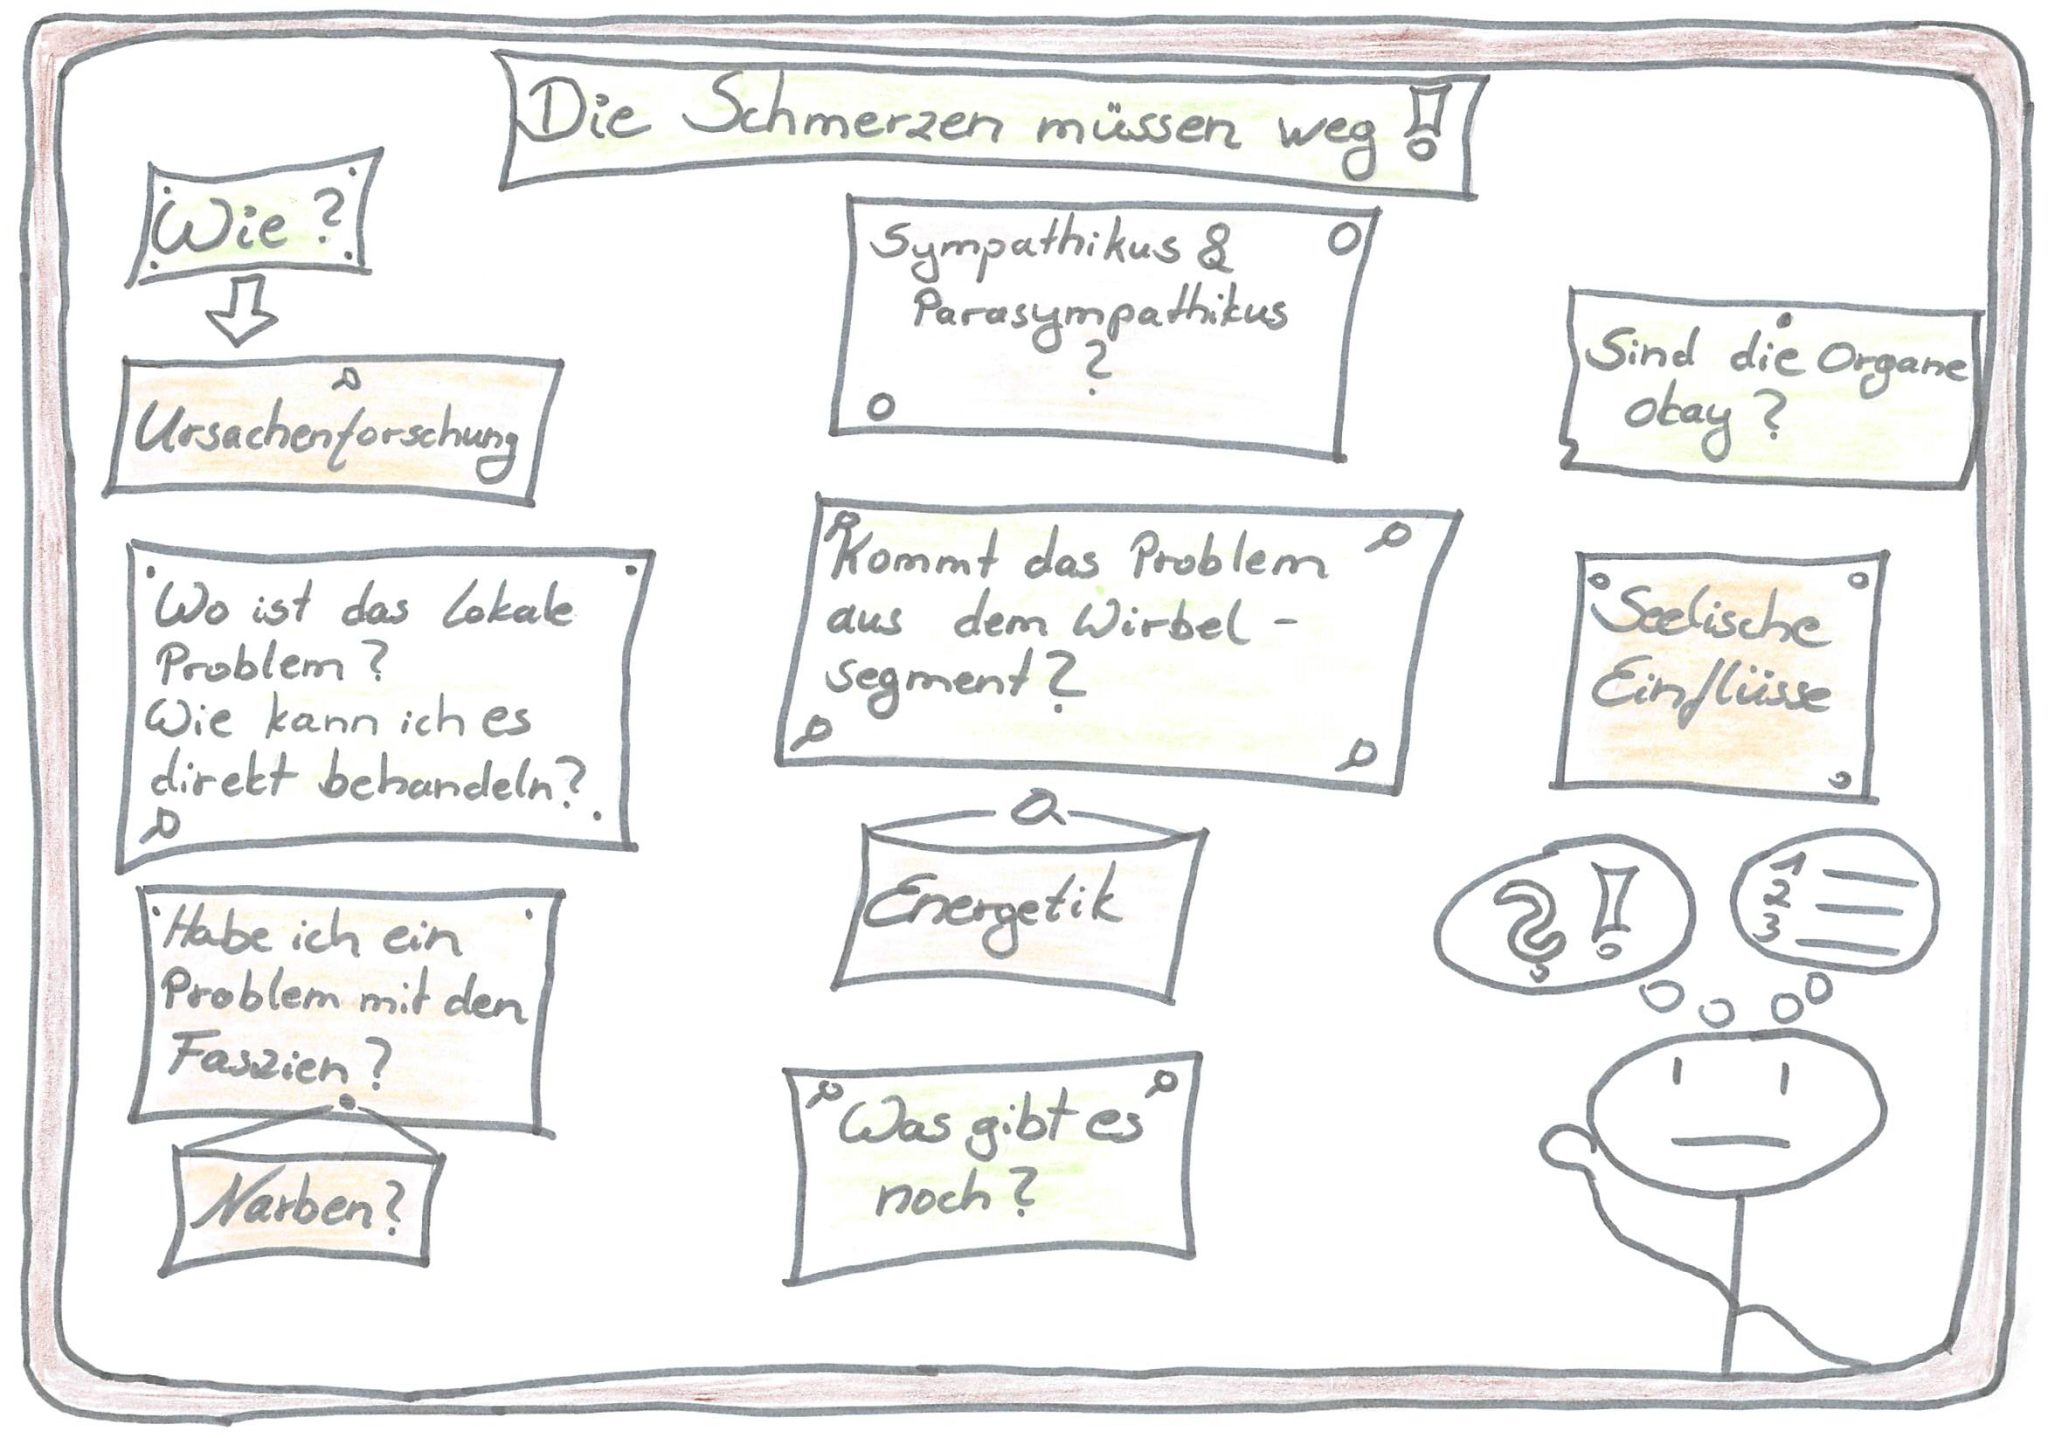 Die Schmerzen müssen weg!
Wie?
Ursachenforschung
Wo ist das Lokale
Problem?
Wie kann ich es
direkt behandeln?
Habe ich ein
Problem mit den
Faszien?
Narben?
Sympathikus &
Parasympathikus
?
Kommt das Problem
aus dem Wirbel-
segment?
Energetik
Was gibt es
noch?
Sind die Organe
okay?
Seelische
Einflüsse
? !
1
2
3